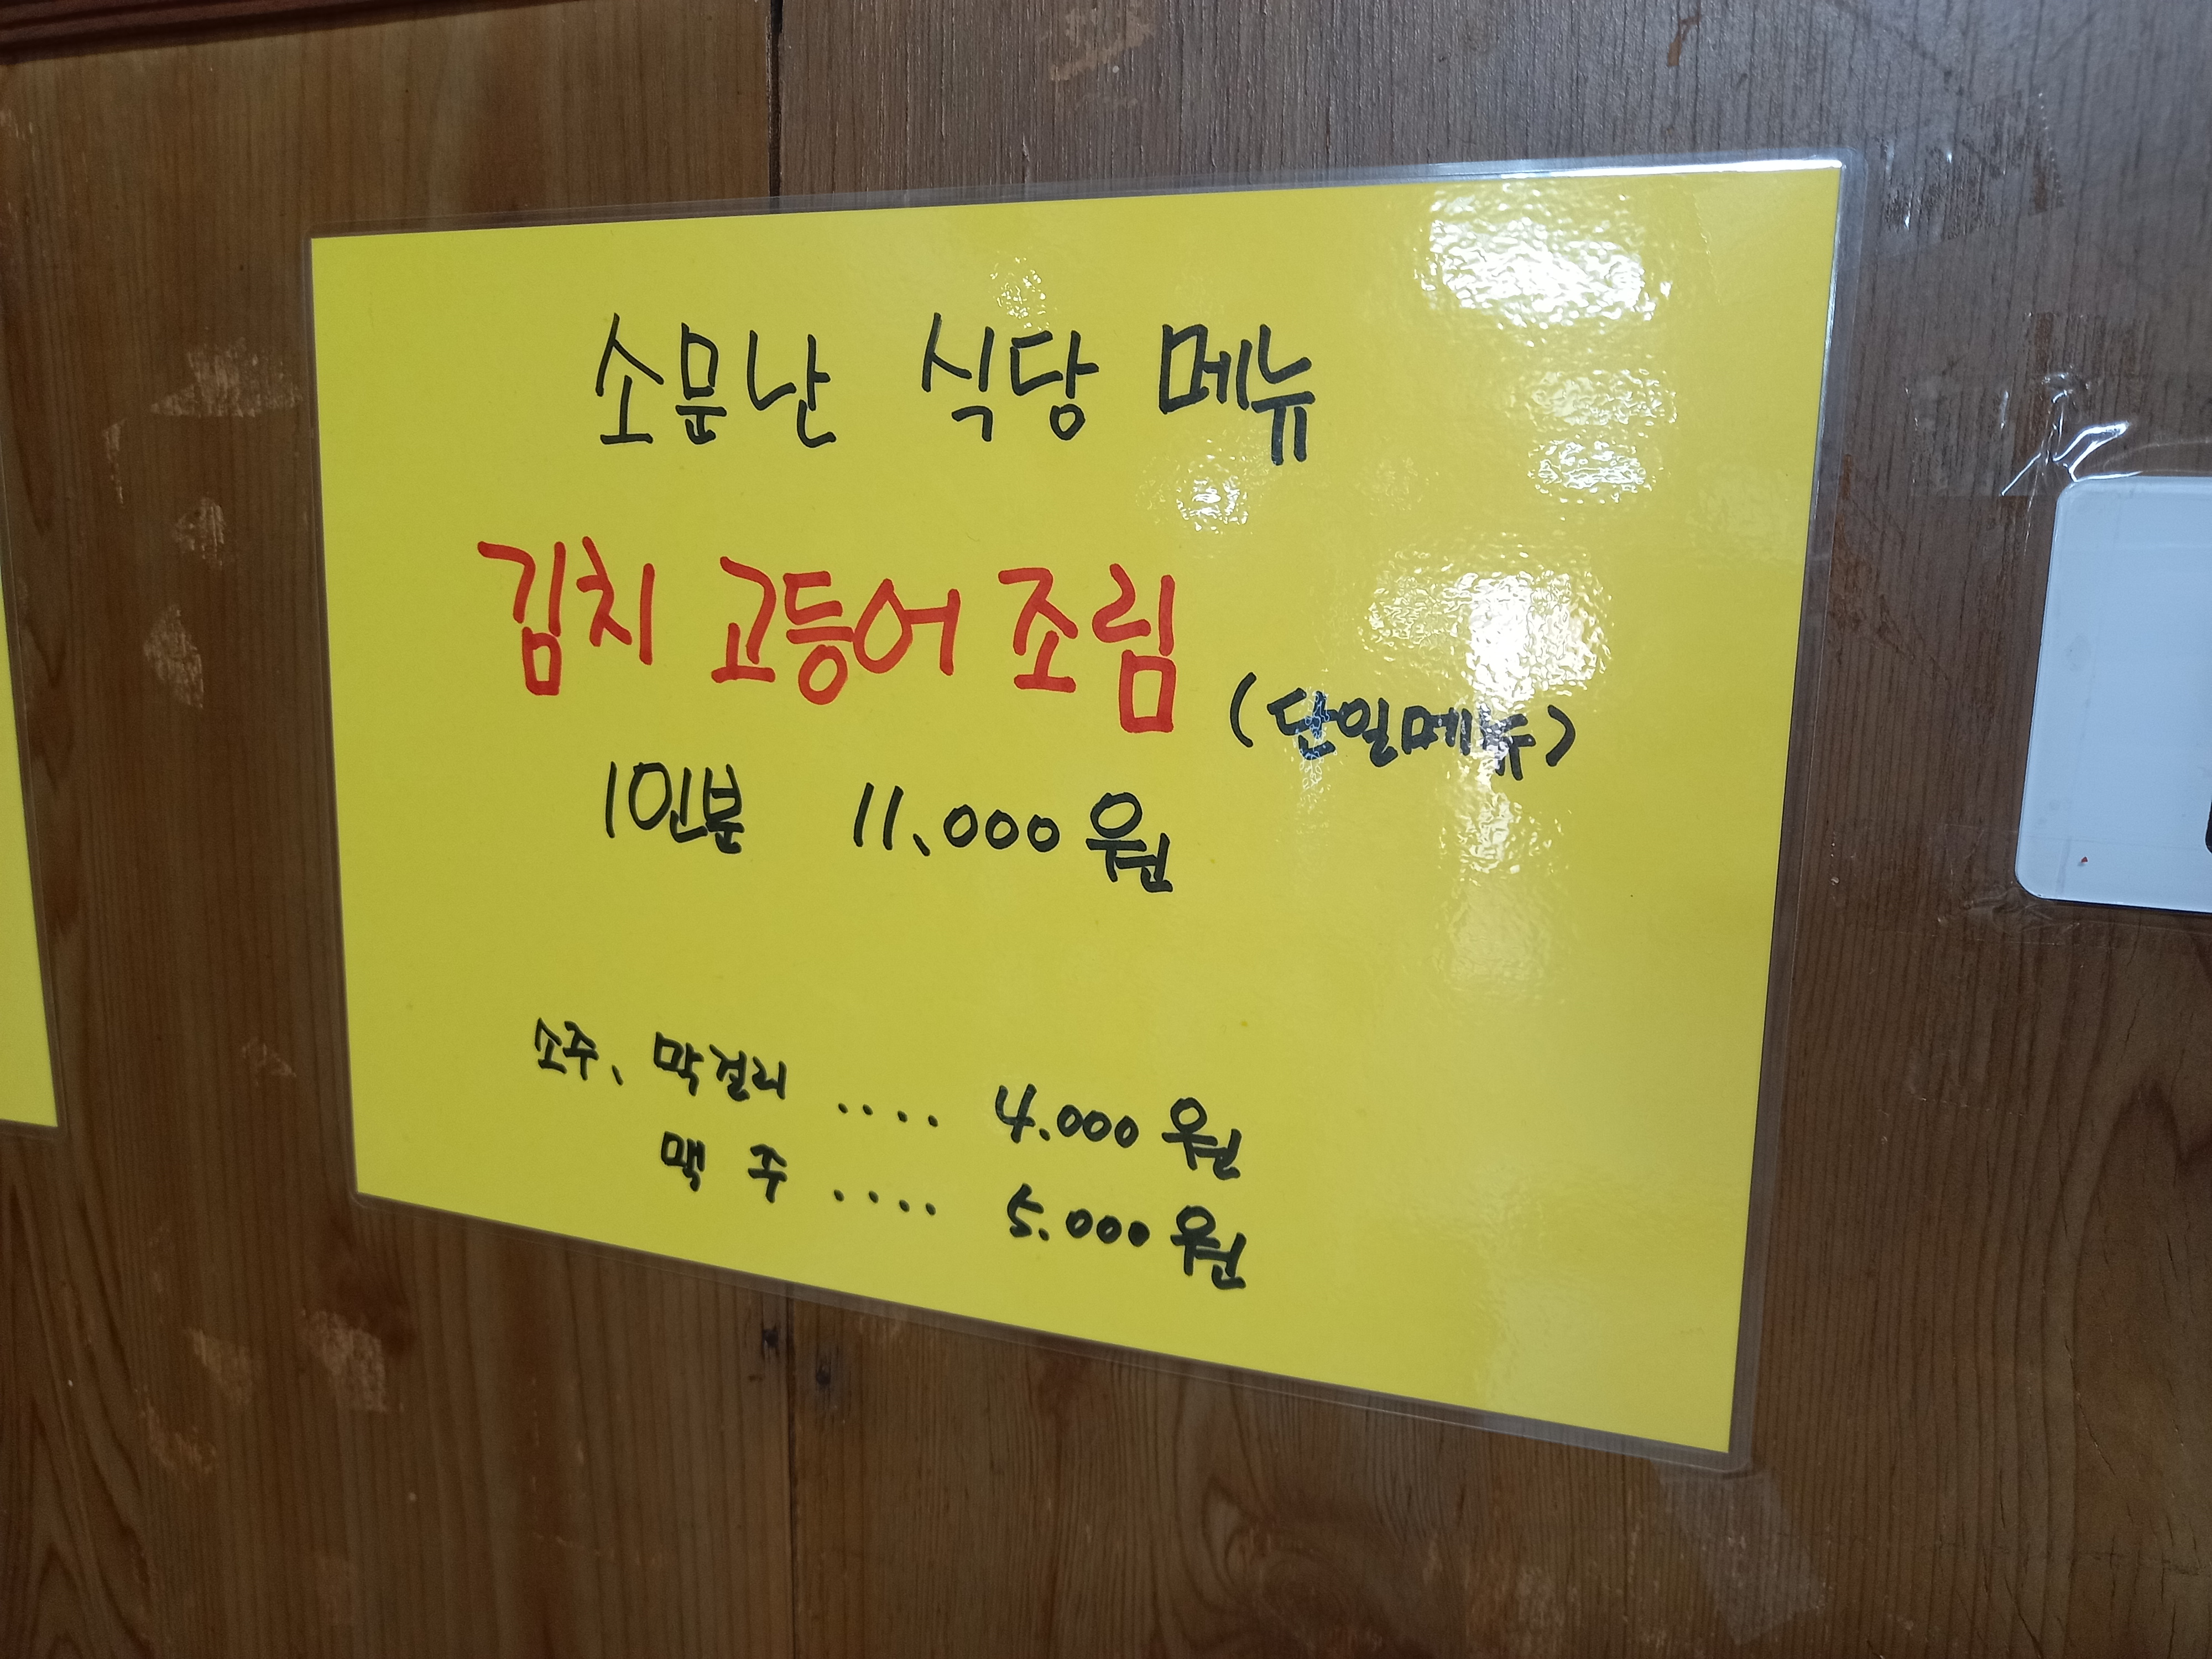 소문난 식당 메뉴
김치 고등어 조림
(단일메뉴)
1인분 11.000원
소주、막걸리 .... 4.000원
맥 주 .... 5.000원